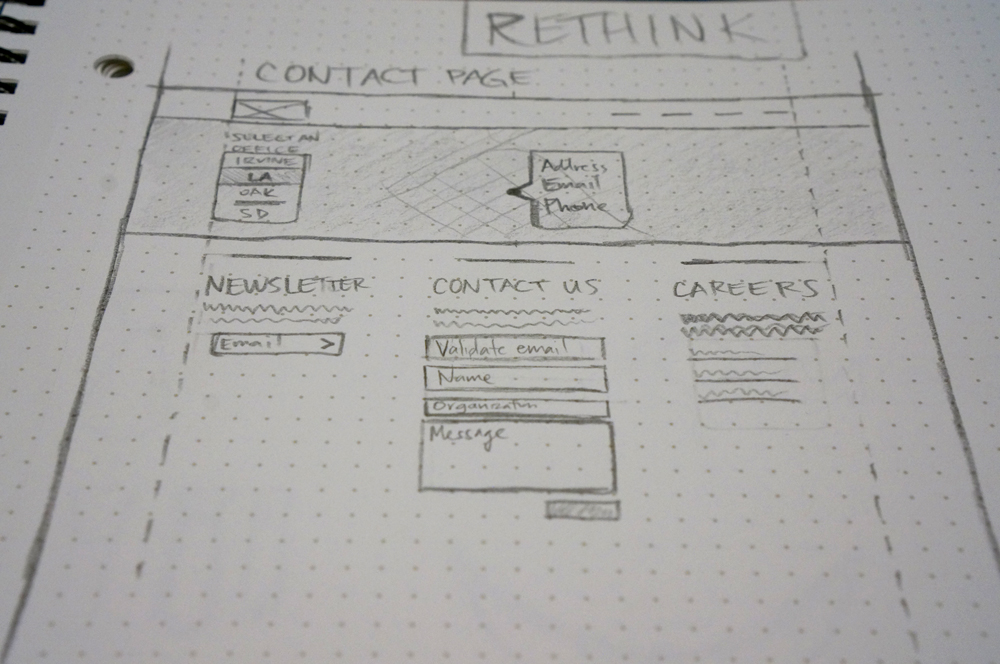 RETHINK
CONTACT PAGE
SELECT AN
OFFICE
IRVINE
LA
OAK
SD
Address
Email
Phone
NEWSLETTER
Email >
CONTACT US
Validate email
Name
Organization
Message
CAREERS